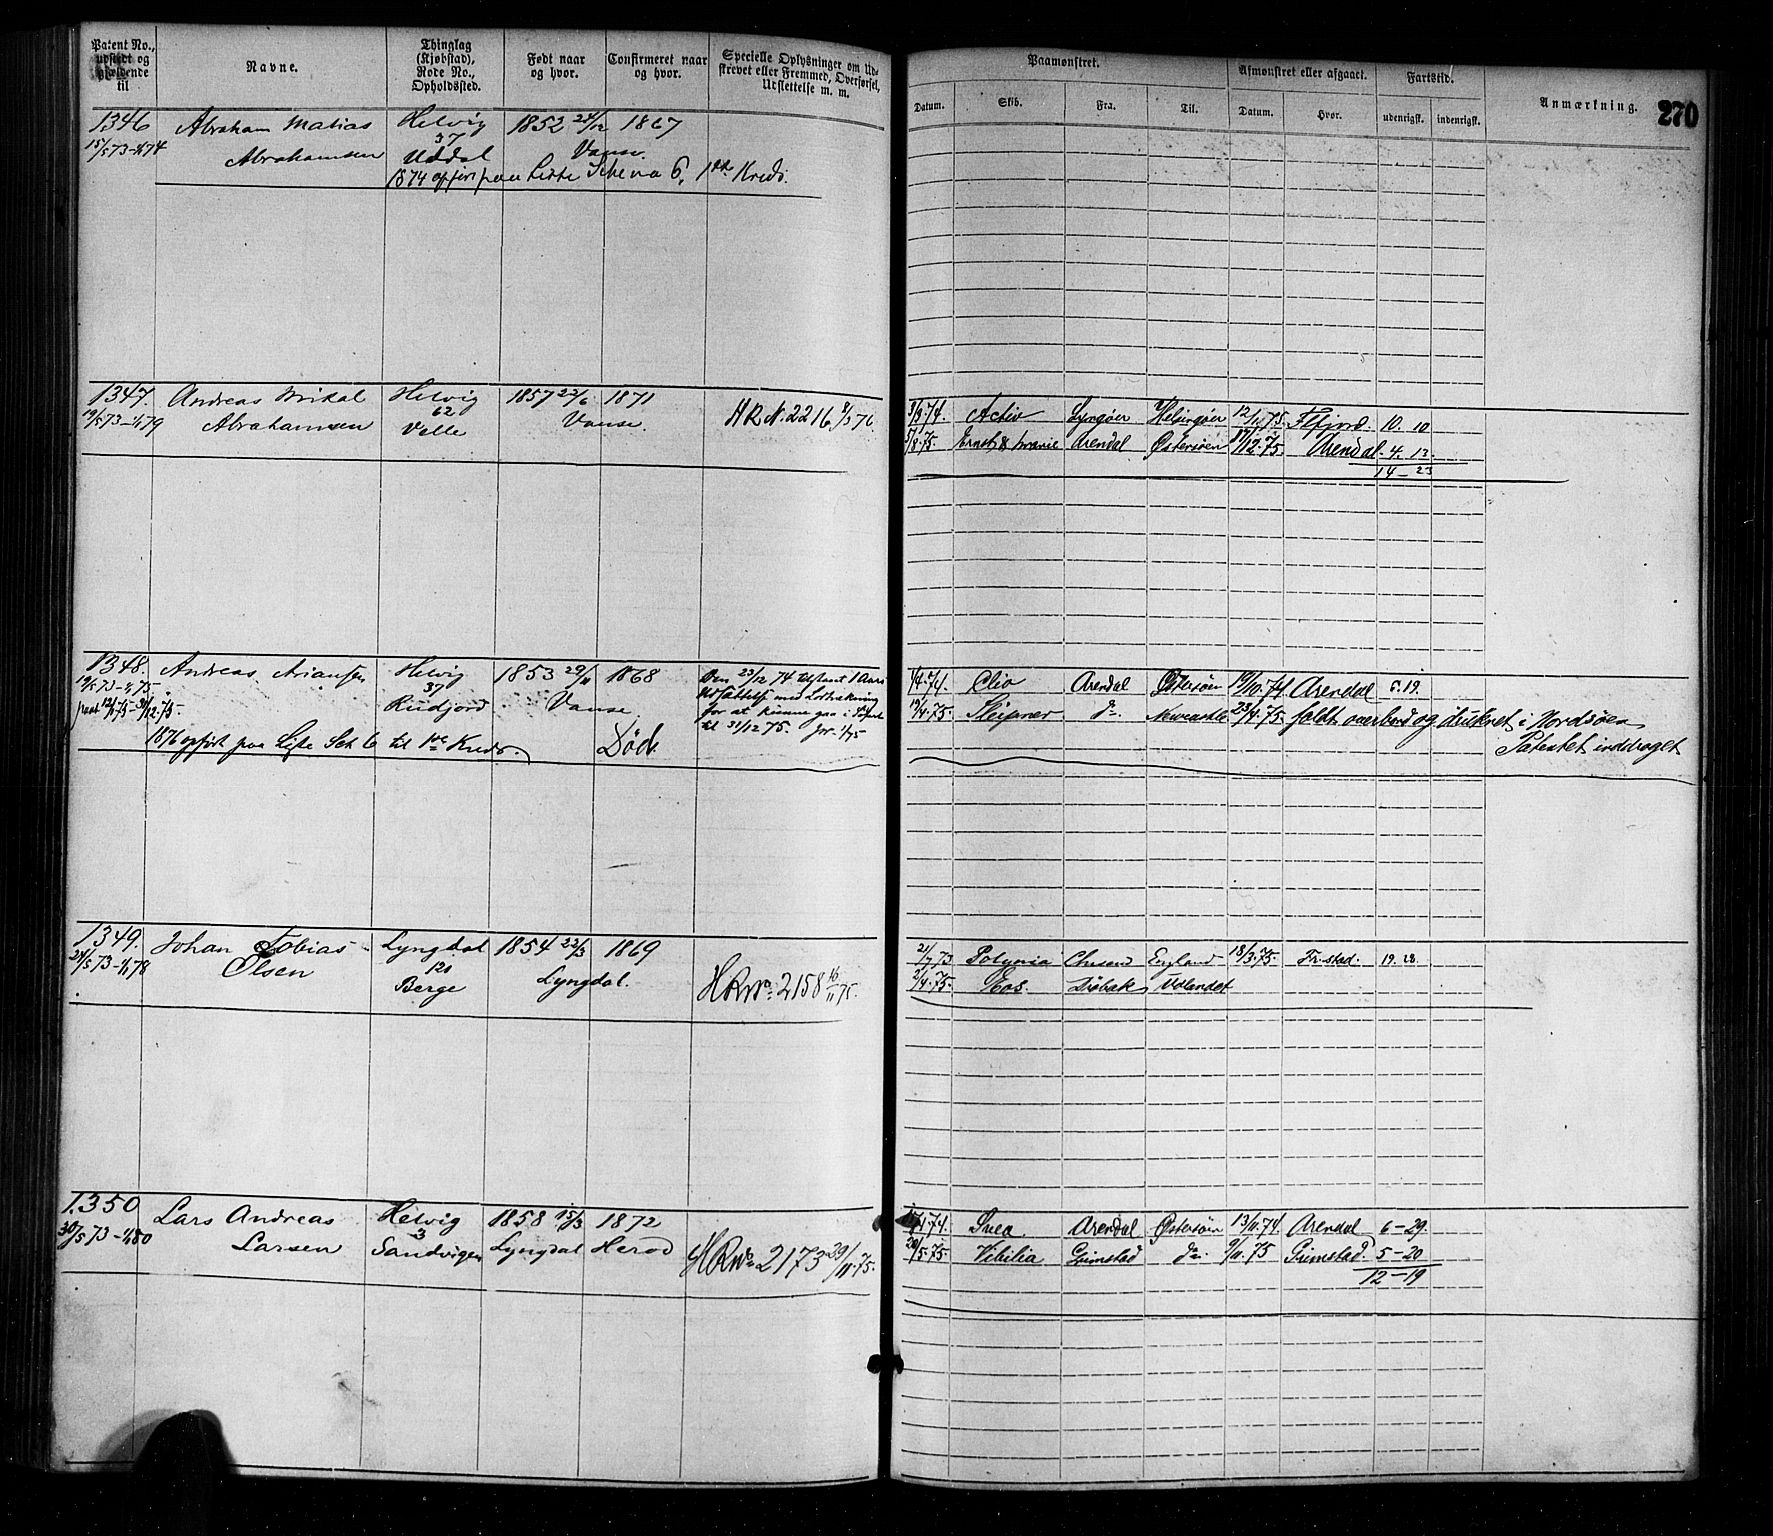 Patent No., udstedt og gjældende til
Navne.
Thinglag (Kjøbstad), Rode No., Opholdssted.
Født naar og hvor.
Confirmeret naar og hvor.
Specielle Oplysninger om Udskrevet eller Fremmed, Overførsel, Udslettelse m. m.
Paamønstret.
Afmønstret eller afgaaet.
Fartstid.
Anmærkning.
270
Datum.
Skib.
Fra.
Til.
Datum.
Hvor.
udenrigsk.
indenrigsk.
1346 Abraham Matias Helvig 1852 24/12 1867
15/5 73-1/1 74 Abrahamsen 37 Uddal Vanse
1874 opført paa Liste Schema 6, 1ste Kreds.
1347. Andreas Mikal Helvig 1857 22/6 1871
19/5 73-1/1 79 Abrahamsen 62 Velle Vanse. HR N. 2216 9/5 76
3/9. 74. Activ Lyngøer Helsingøer 12/1. 75. Flfjord. 10. 10
5/8. 75. Ernst & Marie Arendal Østersøen 17/12. 75. Arendal. 4. 13.
14 - 23
1348. Andreas Ariansen Helvig 1853 29/11 1868
19/5 73-1/1 75. 37 Rudjord Vanse
Den 23/12 74 tilstaaet 1 Aars
Udsættelse med Lodtrækning
for at kunne gaa i Fart
til 31/12 75.
1876 opført paa Liste Sch 6 til 1ste Kreds. Død.
1/4. 74. Clio Arendal Østersøen 19/10. 74 Arendal 5. 19.
19/4. 75. Sleipner do Newcastle 23/4. 75. faldt overbord og druknet i Nordsøen
Patentet inddraget
1349. Johan Tobias Lyngdal 1854 22/3 1869
24/5 73-1/1 78 Olsen 120 Berge Lyngdal. HR No 2158 16/11 75.
21/7 73 Polynia England 18/3. 75. Fr.stad. 19. 28.
2/4. 75. Eos. Drøbak Udlandet
1350 Lars Andreas Helvig 1858 15/3 1872
30/5 73-1/1 80 Larsen 3 Sandvigen Lyngdal Herod HR No 2173 29/11. 75.
74. Svea Arendal Østersøen 13/11. 74. Arendal 6 - 29.
20/5. 75. Vibilia Grimstad do 9/11. 75 Grimstad. 5 - 20
12 - 19